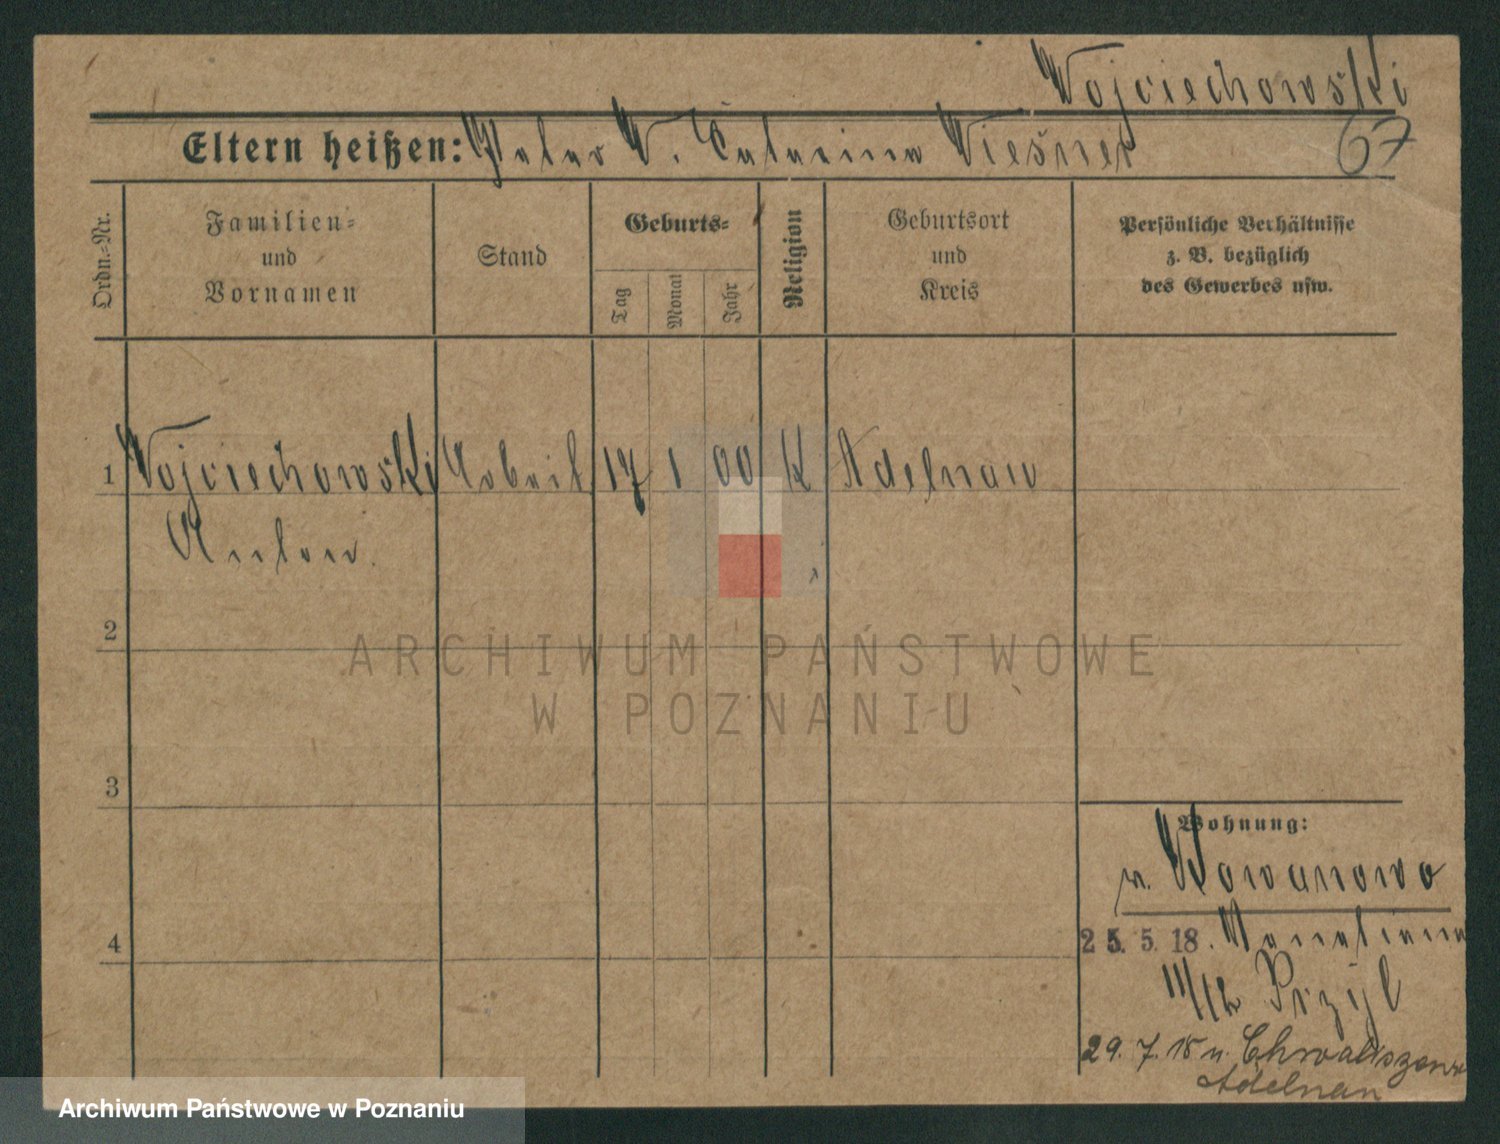 Wojciechowski
67
Eltern heißen: Peter W. Catarina Wiesner
Ordn.-Nr.
Familien-
und
Vornamen
Stand
Geburts-
Tag
Monat
Jahr
Religion
Geburtsort
und
Kreis
Persönliche Verhältnisse
z. B. bezüglich
des Gewerbes usw.
1 Wojciechowski Arbeit 17 1 00 K Adelnau
Anton.
2
3
4
ARCHIWUM PAŃSTWOWE
W POZNANIU
Wohnung:
n. Kowanowo
25. 5. 18.
11/12 Przyb
29. 7. 18 n.
Adelnau
Archiwum Państwowe w Poznaniu